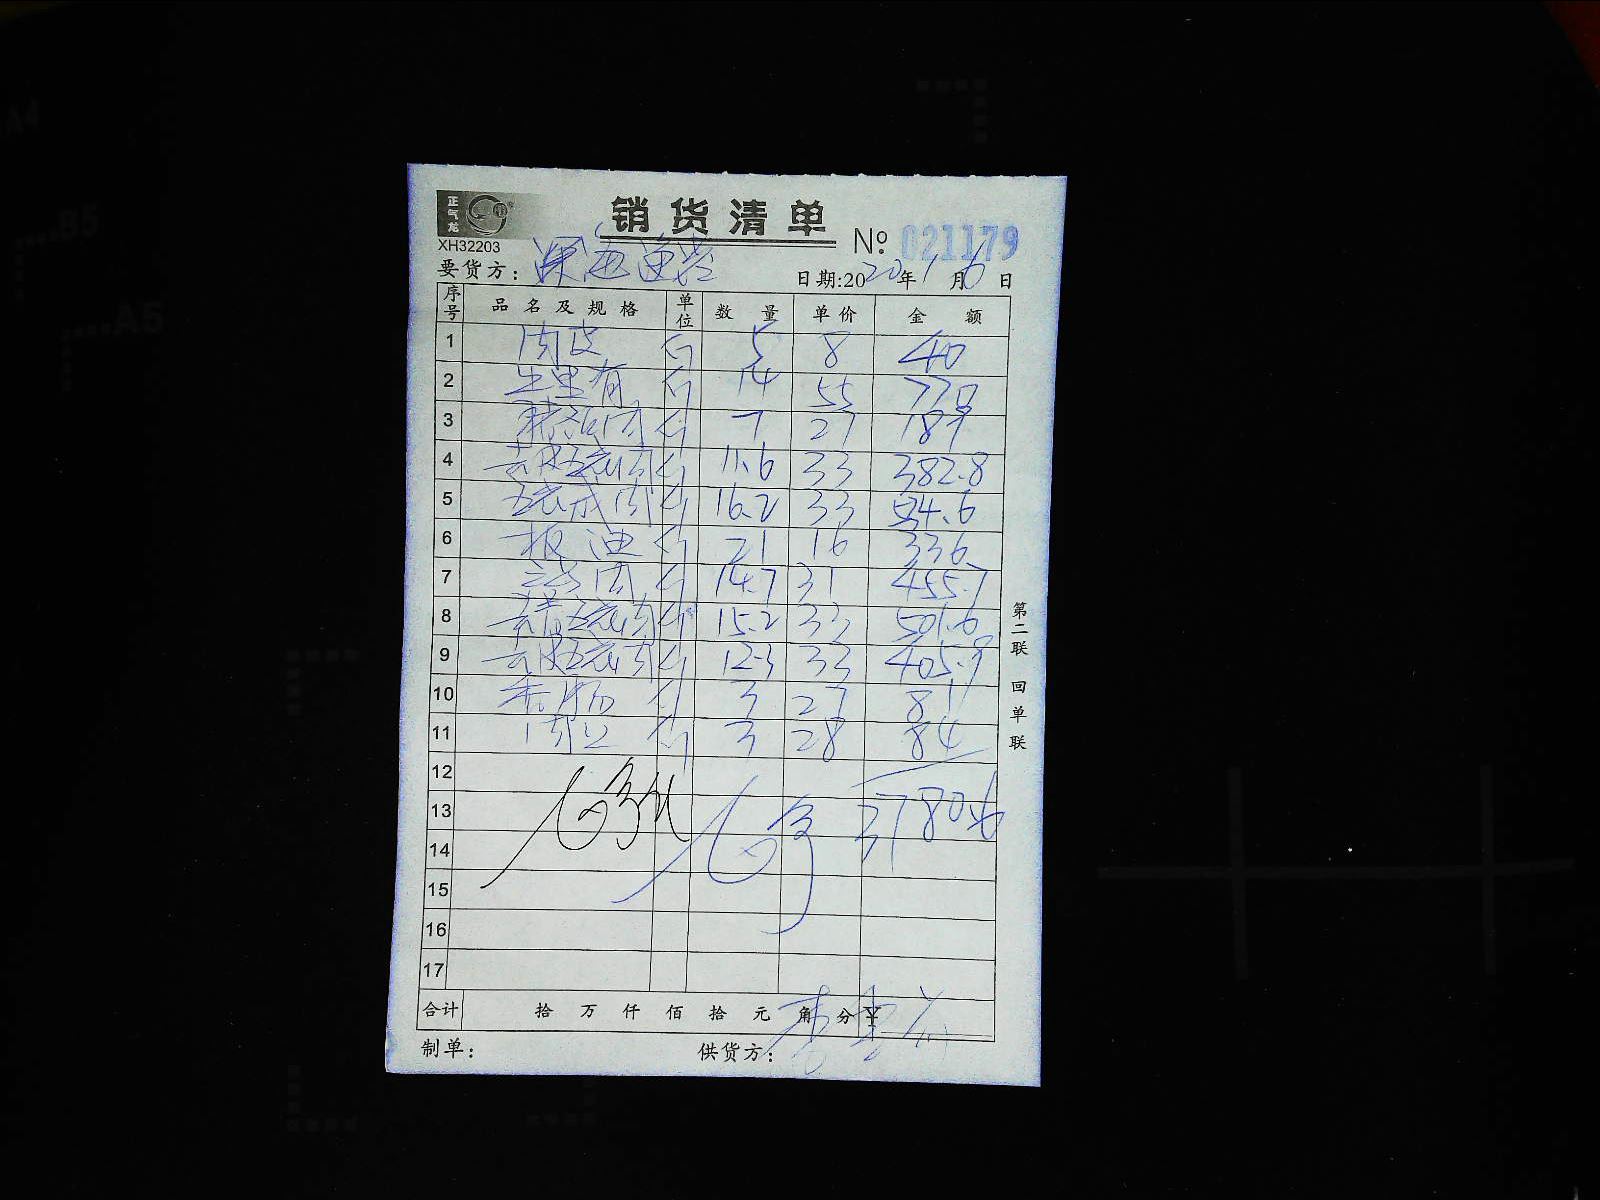 正气龙
销货清单
XH32203
№ 021179
要货方: 深海渔港 日期:2020年1月6日
序号 品名及规格 单位 数量 单价 金额
1 肉皮 斤 5 8 40
2 斤 14 55 770
3 斤 7 27 189
4 去皮五花肉 斤 11.6 33 382.8
5 斤 16.2 33 534.6
6 板油 斤 21 16 336
7 肉 斤 14.7 31 455.7
8 五花肉 斤 15.2 33 501.6
9 去皮五花肉 斤 12.3 33 405.9
10 香肠 斤 3 27 81
11 斤 3 28 84
12
13 3780.6
14
15
16
17
合计 拾 万 仟 佰 拾 元 角 分 ¥
制单: 供货方:
第二联 回单联
A4
B5
A5